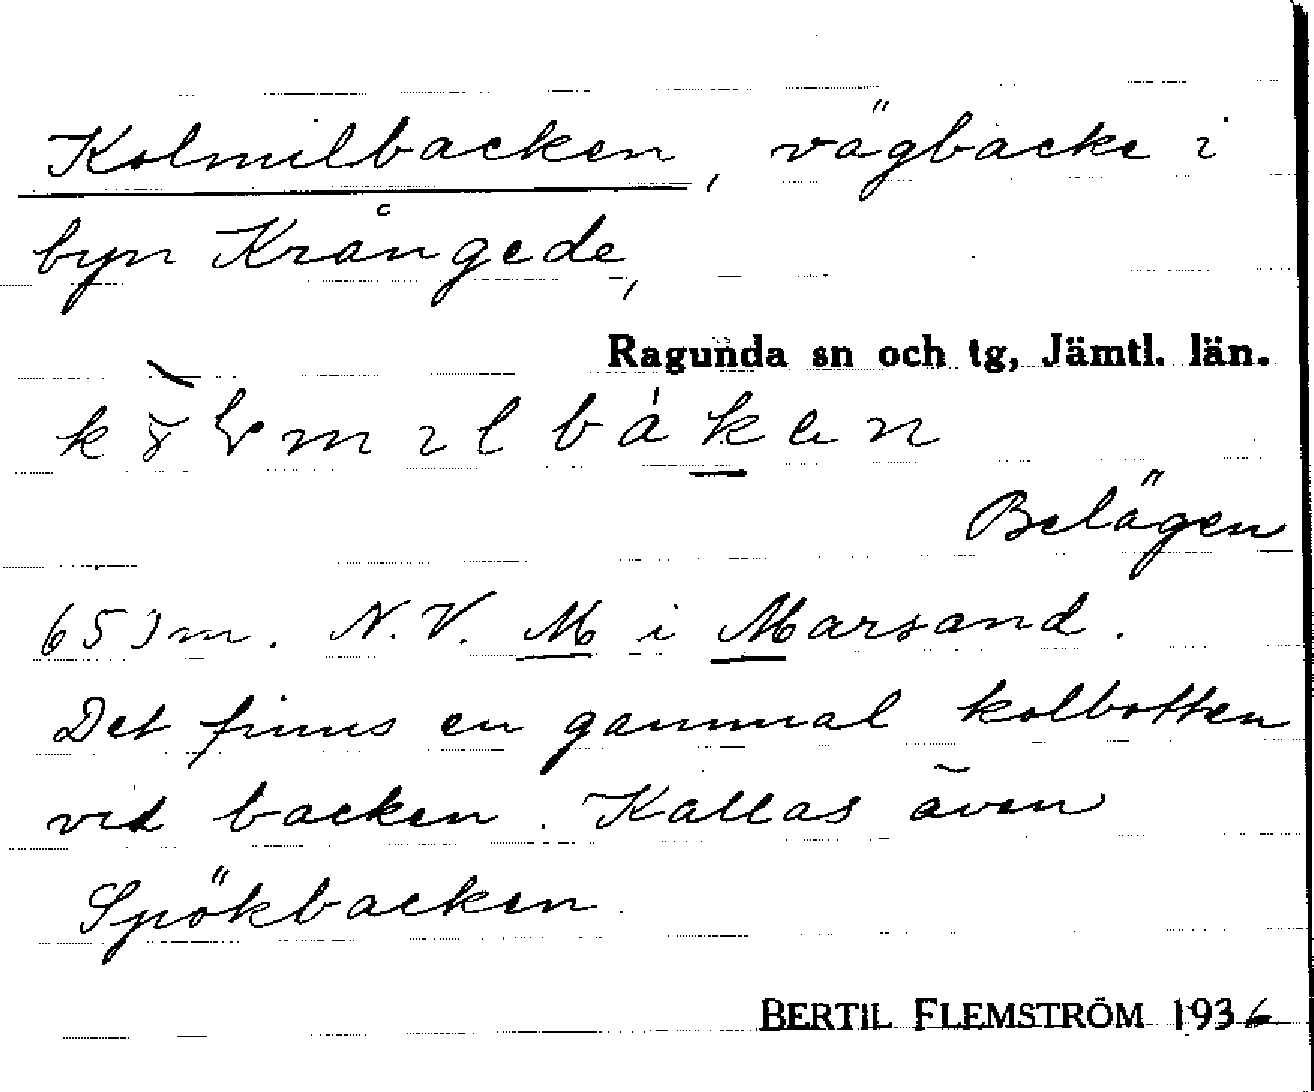 Kolmilbacken, vägbacke i
byn Krångede,
Ragunda sn och tg, Jämtl. län.
Belägen
650 m. N.V. M i Marsand.
Det finns en gammal kolbotten
vid backen. Kallas även
Spökbacken.
BERTIL FLEMSTRÖM 1936